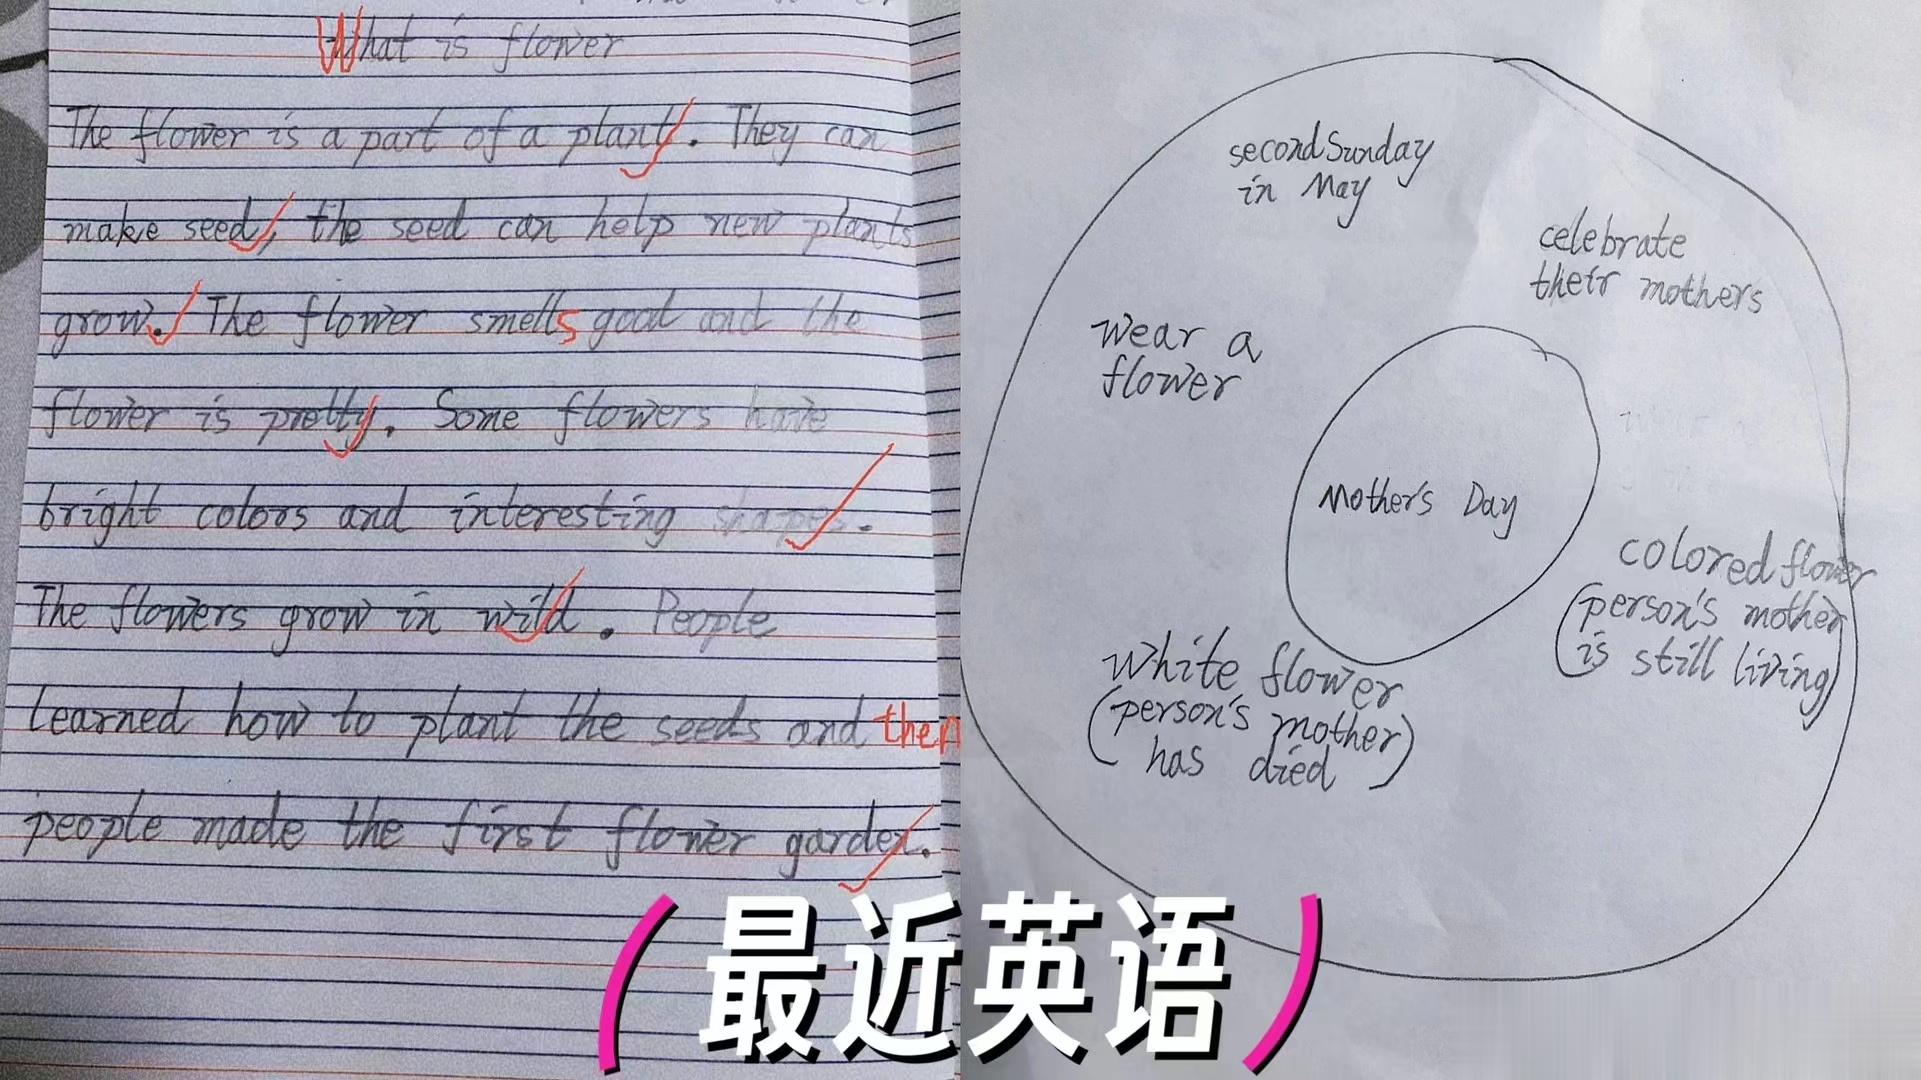 What is flower
The flower is a part of a plant. They can
make seed, the seed can help new plants
grow. The flower smells good and the
flower is pretty. Some flowers have
bright colors and interesting shapes.
The flowers grow in wild. People
learned how to plant the seeds and then
people made the first flower garden.
second Sunday
in May
celebrate
their mothers
wear a
flower
Mother's Day
colored flower
(person's mother
is still living)
white flower
(person's mother)
has died
(最近英语)